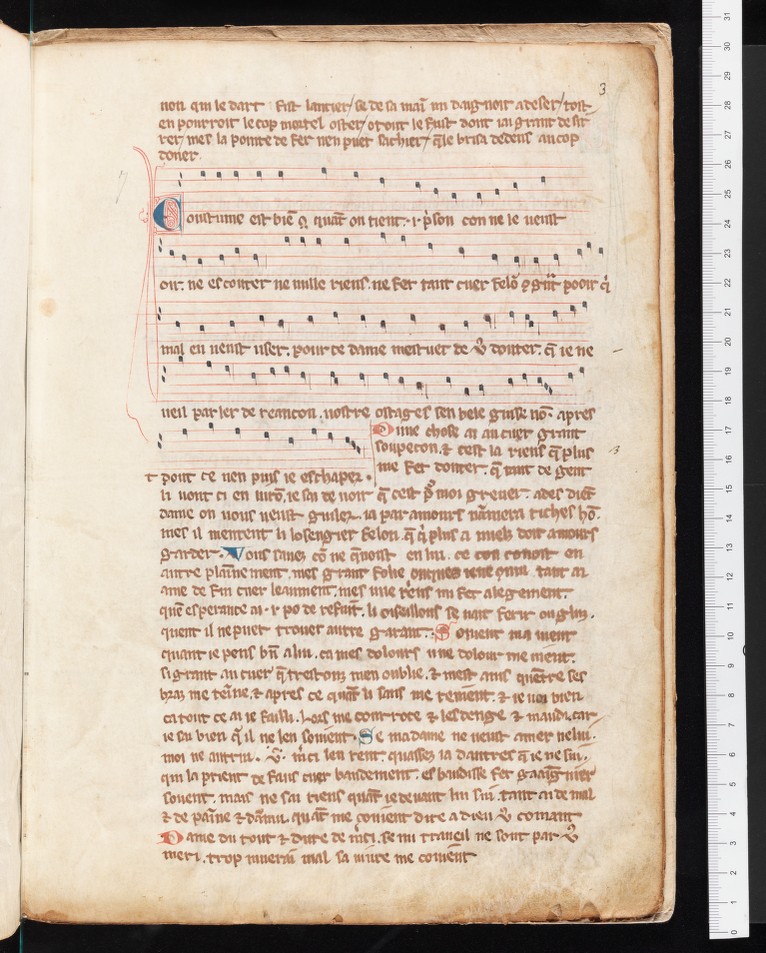 3
non qui le dart fist lancier/ se de sa maī nn daignoit adeser/ tost
en porroit le cop mortel oster/ o tout le fust dont iai grant desir
rer/ mes la pointe de fer nen puet sachier/ q̄le brisa dedens au cop
doner.
Coustume est biē q̄ quāt on tient .i. p̓son con ne le veust
oir. ne escouter ne mille riens. ne fet tant cuer felō pooir q̓
mal en veust user. pour ce dame mestuet de douter. q̄ ie ne
ueil parler de reancon. nostre ostages sen bele guise nō. apres
t pout ce nen puis ie eschaper.
Dune chose ai au cuer grant
soupecon. & cest la riens q̄ plus
me fet douter. q̄ tant de gent
li uont ci en uirō. ie sai de uoir q̄ cest p̄ moi greuer. ades dient
dame on uous ueust guiler. ia par amours namera riches hō.
mes il mentent li losengier felon. q̄ q̓ plus a mielz doit amours
garder. Vous sauez en lui. ce con conoist en
autre plainement. mes grant folie tant ai
ame de fin cuer leaument. mes une riens mi fet alegement.
quē esperance ai .i. po de refuit. li oiseillons se uait ferir ou glui.
quent il ne puet trouer autre garant. Souent ma uient
quant ie pens bn̄ a lui. ca mes dolours une dolour me uient.
si grant au cuer q̄ trestouz men oublie. & mest auis quentre ses
braz me teine. & apres ce quāt li sans me reuient. & ie uoi bien
ca tout ce ai ie failli. Lors me courroce & lesdenge & maudi. car
ie sai bien q̓il ne len souient. Se ma dame ne ueust amer nelui.
moi ne autrui. m̓ci len rent. quassez ia dautres q̄ ie ne sui.
qui la prient de faus cuer baudement. esbaudise fet gaaignier
souent. mais ne sai riens quāt ie deuant lui sui. tant ai de mal
& de paine & danui. quāt me couient dire a dieu comant
Dame du tout & dure de m̓ci. se mi traueil ne sont par
meri. trop mal sa uiure me couient